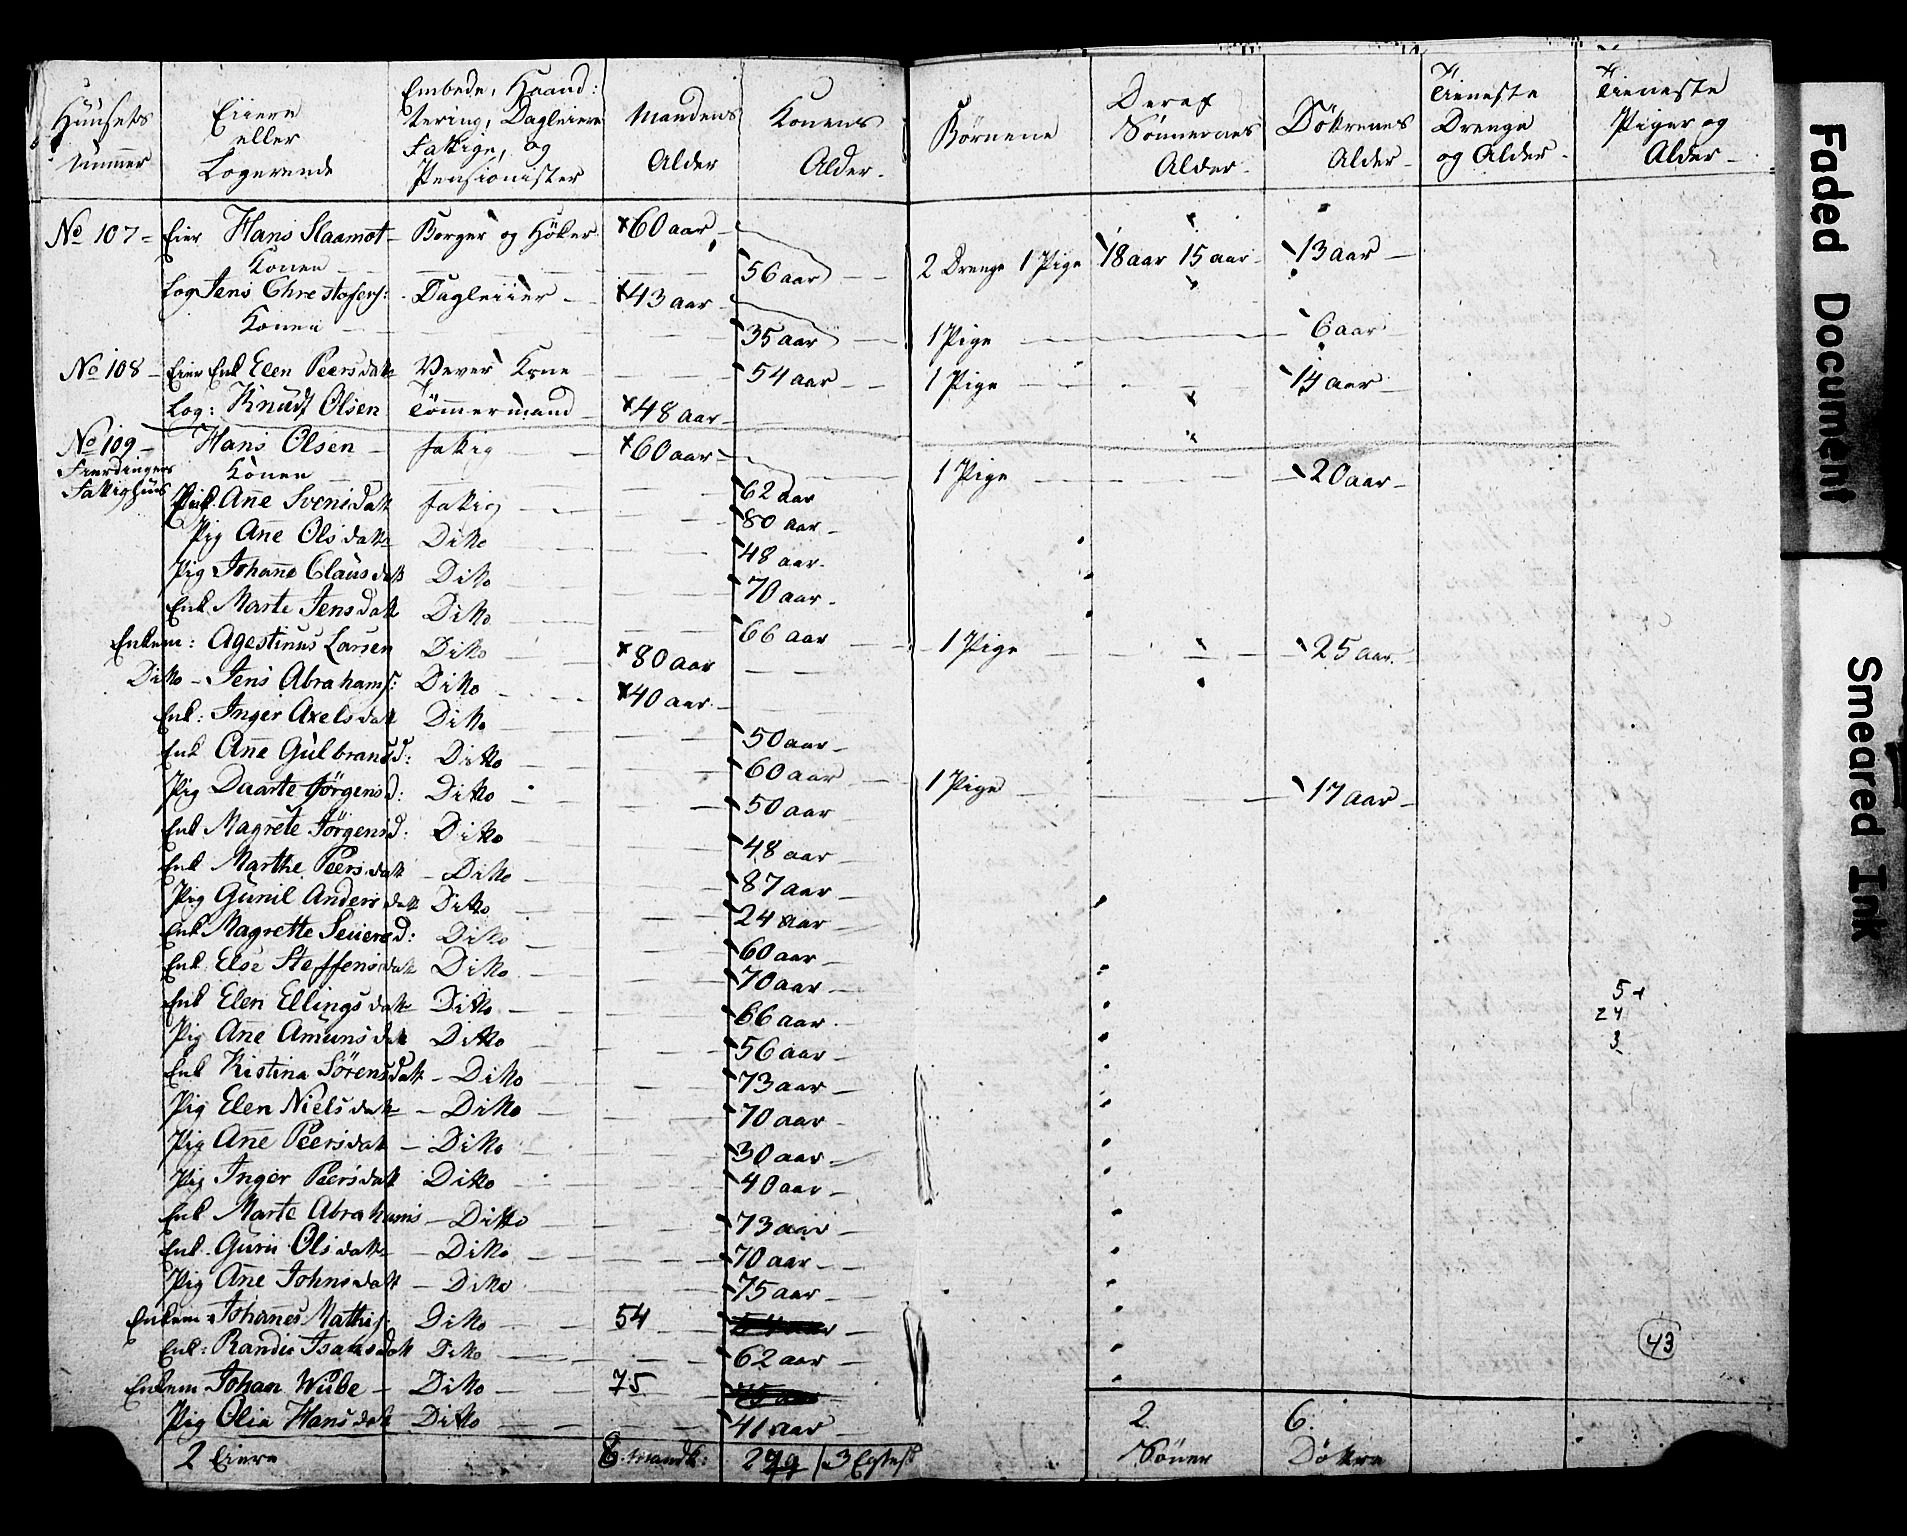 Huusets Nummer | Eiere eller Logerende | Embede, Haandtering, Dagleiere Fattige, og Pensionister | Mandens Alder | Konens Alder. | Börnene | Deraf Sönnernes Alder. | Döttrenes Alder. | Tieneste Drenge og Alder. | Tieneste Piger og Alder
No 107 Eier Hans Slaamot Borger og Höker 60 aar
Konen 56 aar 2 Drenge 1 Pige 18 aar 15 aar 13 aar
Log Jens Chrestofers: Dagleiier 43 aar
Konen 35 aar 1 Pige 6 aar
No 108 Eier Enk Elen Peersdatt Vever Kone 54 aar 1 Pige 14 aar
Log: Knudt Olsen Tömmermand 48 aar
No 109 Hans Olsen fattig 60 aar
Fierdingens Konen 62 aar 1 Pige 20 aar
Fattighuus
Enk Ane Svensdatt fattig 80 aar
Pig Ane Olsdatt Ditto 48 aar
Pig Johane Clausdatt Ditto 70 aar
Enk Marte Jensdatt Ditto 66 aar 1 Pige 25 aar
Enkem: Agestinus Larsen Ditto 80 aar
Ditto Jens Abrahams: Ditto 40 aar
Enk: Inger Axelsdatt Ditto 50 aar
Enk Ane Gulbransd: Ditto 60 aar 1 Pige 17 aar
Pig Daarte Jörgensd: Ditto 50 aar
Enk Magrete Jörgensd: Ditto 48 aar
Enk Marthe Peersdatt Ditto 87 aar
Pig Gunil Andersdatt Ditto 24 aar
Enk Magrette Seuersd: Ditto 60 aar
Enk Else Steffensdatt Ditto 70 aar
Enk Elen Ellingsdatt Ditto 66 aar
Pig Ane Amunsdatt Ditto 56 aar
Enk Kistina Sörensdatt Ditto 73 aar
Pig Elen Nielsdatt Ditto 70 aar
Pig Ane Peersdatt Ditto 30 aar
Pig Inger Peersdatt Ditto 40 aar
Enk Marte Abrahams Ditto 73 aar
Enk Guru Olsdatt Ditto 70 aar
Pig Ane Johnsdatt Ditto 75 aar
Enkem: Johanes Mathis: Ditto 54
Enk: Randie Isaksdatt Ditto 62 aar
Enkem Johan Wibe Ditto 75
Pig Olia Hansdatt Ditto 41 aar
2 Eiere 8 Mandk: 3 2 Söner 6 Döttre
5
24
3
43
Faded Document
Smeared Ink